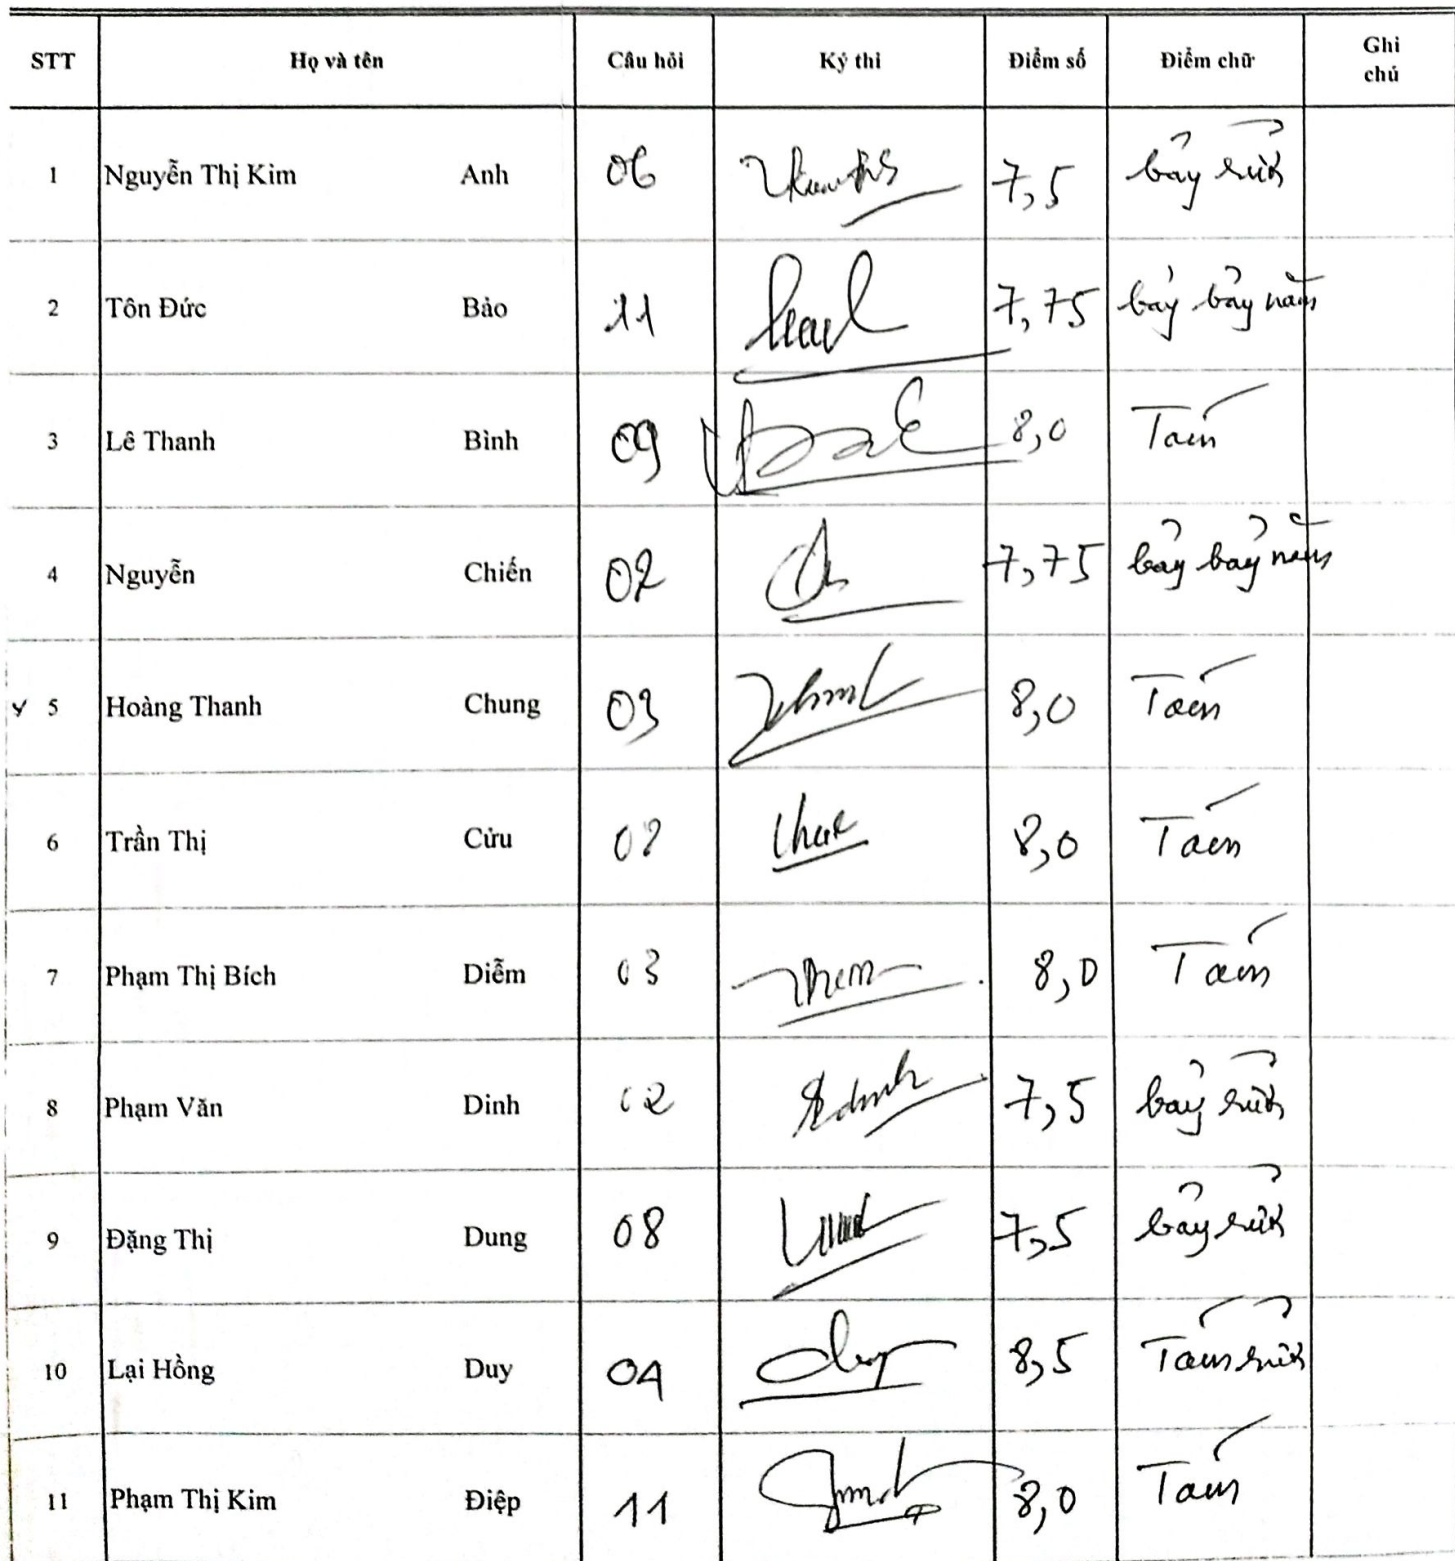 STT Họ và tên Câu hỏi Ký thi Điểm số Điểm chữ Ghi chú
1 Nguyễn Thị Kim Anh 06 7,5 bảy rưỡi
2 Tôn Đức Bảo 11 7,75 bảy bảy năm
3 Lê Thanh Bình 09 8,0 Tám
4 Nguyễn Chiến 02 7,75 bảy bảy năm
5 Hoàng Thanh Chung 03 8,0 Tám
6 Trần Thị Cửu 8,0 Tám
7 Phạm Thị Bích Diễm 03 8,0 Tám
8 Phạm Văn Dinh 02 7,5 bảy rưỡi
9 Đặng Thị Dung 08 7,5 bảy rưỡi
10 Lại Hồng Duy 04 8,5 Tám rưỡi
11 Phạm Thị Kim Điệp 11 8,0 Tám